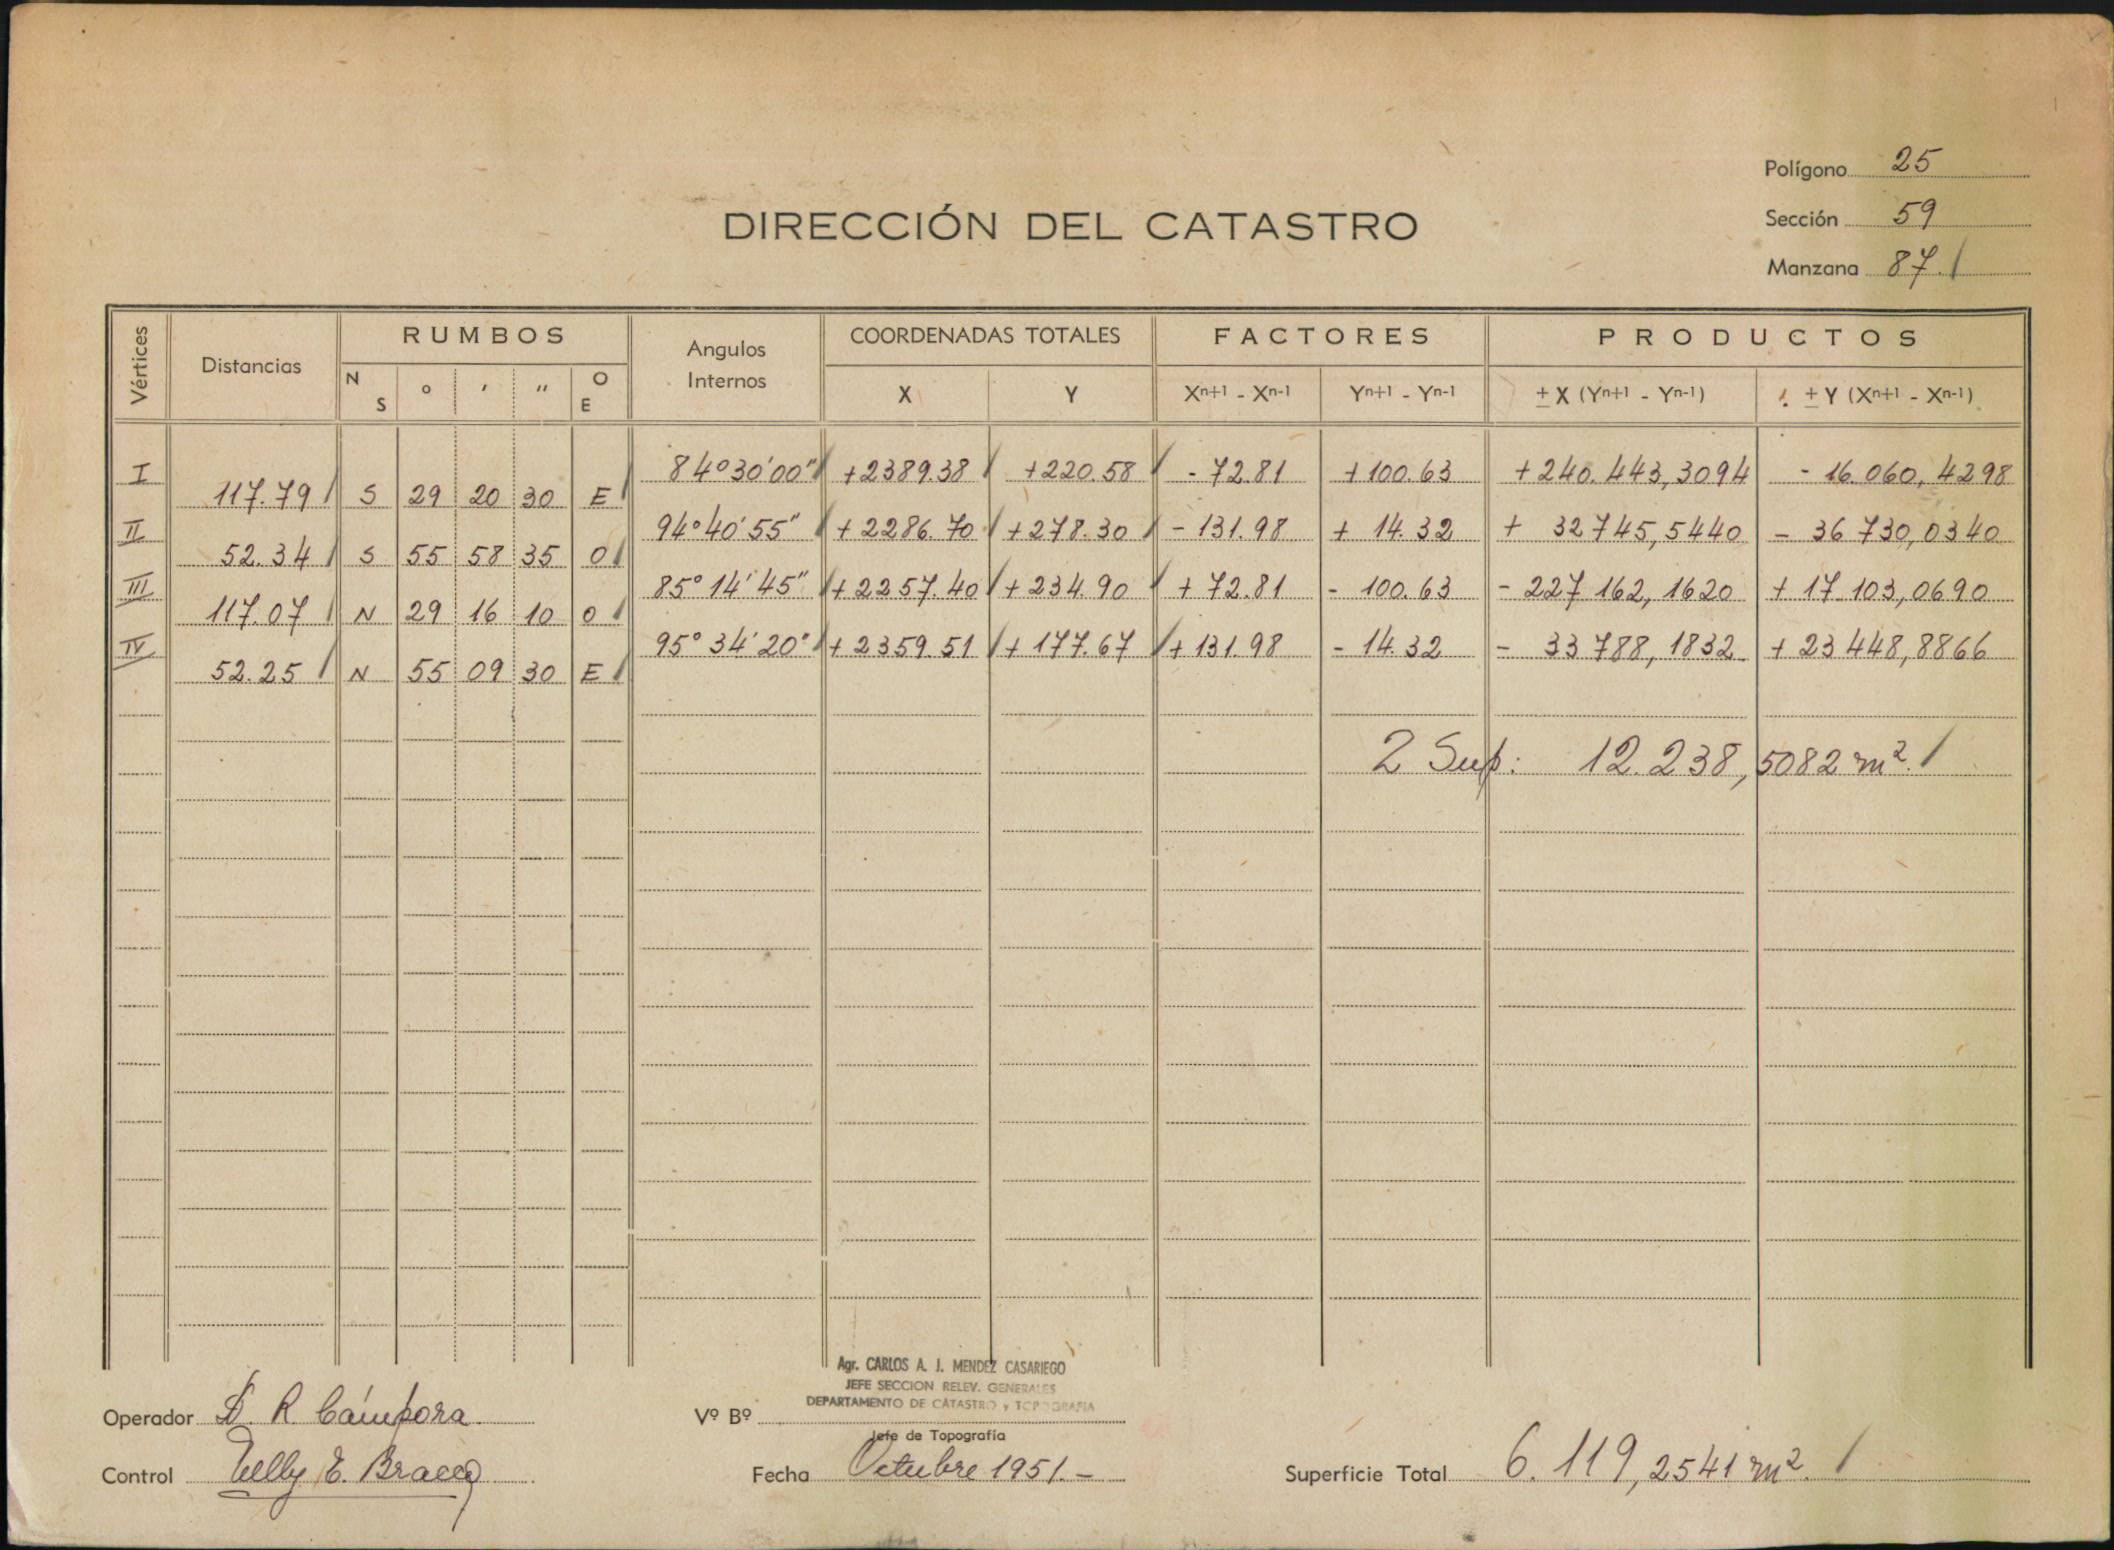 Polígono 25
DIRECCIÓN DEL CATASTRO
Sección 59
Manzana 87.
Vértices Distancias RUMBOS Angulos Internos COORDENADAS TOTALES FACTORES PRODUCTOS
N S ° ' " O E X Y Xn+1 - Xn-1 Yn+1 - Yn-1 ± X (Yn+1 - Yn-1) ± Y (Xn+1 - Xn-1)
I 84°30'00" +2389.38 +220.58 - 72.81 +100.63 +240.443,3094 - 16.060,4298
117.79 S 29 20 30 E
II 94°40'55" +2286.70 +278.30 - 131.98 + 14.32 + 32745,5440 - 36 730,0340
52.34 S 55 58 35 O
III 85°14'45" +2257.40 +234.90 + 72.81 - 100.63 - 227 162,1620 + 17.103,0690
117.07 N 29 16 10 O
IV 95°34'20" +2359.51 +177.67 +131.98 - 14.32 - 33 788,1832 + 23 448,8866
52.25 N 55 09 30 E
2 Sup: 12.238,5082 m².
Agr. CARLOS A. J. MENDEZ CASARIEGO
JEFE SECCION RELEV. GENERALES
DEPARTAMENTO DE CATASTRO y TOPOGRAFIA
Operador D. R. Cámpora.
Vº Bº
Jefe de Topografía
Control Nelly E. Bracco
Fecha Octubre 1951.-
Superficie Total 6.119,2541 m².